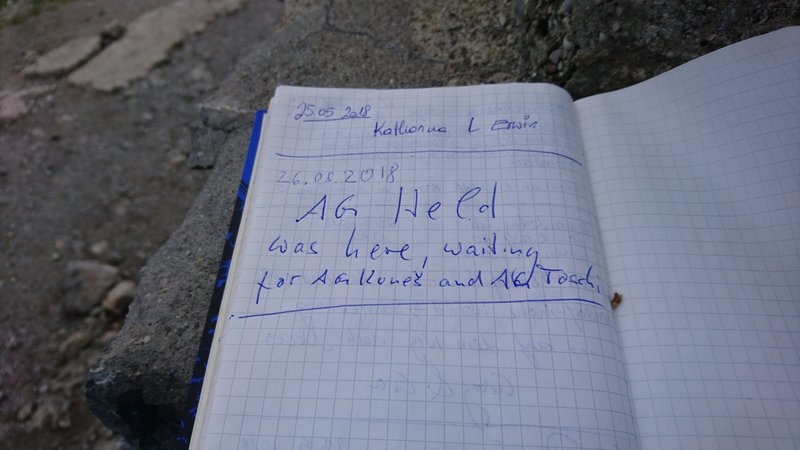 25.05 2018
Katharina L Erwin
26.05.2018
AG Held
was here, waiting
for AG Kuneš and AG Toschi